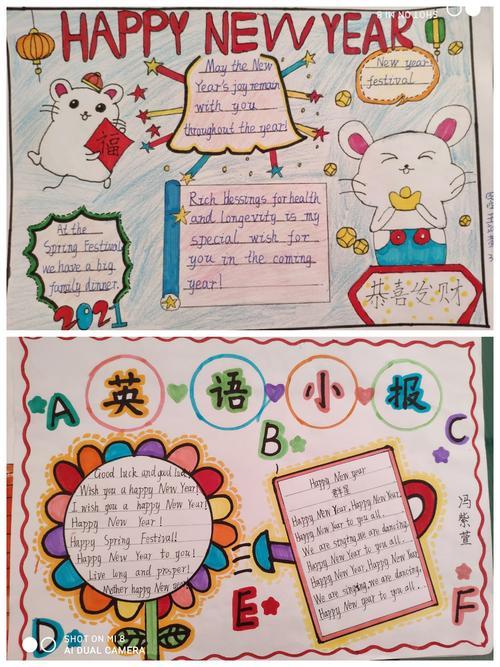 SHOT ON MI 8
HAPPY NEW YEAR
May the New
Year's joy remain
with you
throughout the year!
New year
festival
福
Rich blessings for health
and longevity is my
special wish for
you in the coming
year!
At the
Spring Festival,
we have a big
family dinner.
2021
恭喜发财
英语小报
A
B
C
Good luck and good luck
Wish you a happy New Year!
I wish you a happy New Year!
Happy New Year !
Happy Spring Festival!
Happy New Year to you!
Live long and prosper!
Mother happy New year
Happy New year
Happy New Year, Happy New Year.
Happy New Year to you all.
We are singing, we are dancing.
Happy New Year to you all.
Happy New Year, Happy New Year
We are singing, we are dancing.
Happy New Year to you all...
冯紫萱
D
E
F
SHOT ON MI 8
AI DUAL CAMERA